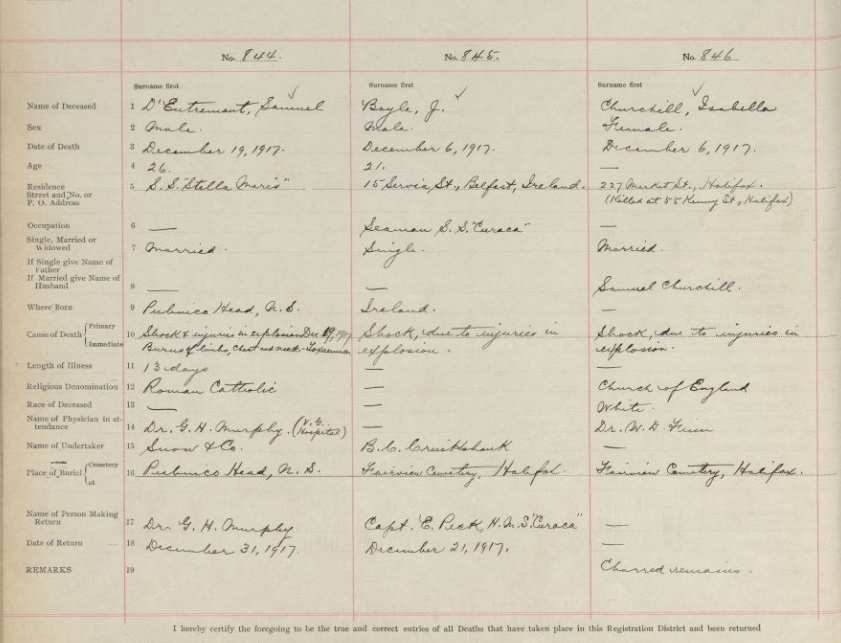 No. 844. No. 845. No. 846
Surname first Surname first Surname first
Name of Deceased 1 D'Entremont, Samuel Boyle, J. Churchill, Isabella
Sex 2 Male. Male. Female.
Date of Death 3 December 19, 1917. December 6, 1917. December 6, 1917.
Age 4 26. 21. —
Residence
Street and No. or
P. O. Address
5 S. S. "Stella Maris" 15 Servia St., Belfast, Ireland. 227 Market St., Halifax.
(Killed at 55 Kenny St., Halifax)
Occupation 6 — Seaman S. S. "Curaca" —
Single, Married or
Widowed
7 Married. Single. Married.
If Single give Name of
Father
If Married give Name of
Husband
8 — — Samuel Churchill.
Where Born 9 Pubnico Head, N. S. Ireland. —
Cause of Death Primary 10 Shock & injuries in explosion Dec 1917 Shock, due to injuries in Shock, due to injuries in
Immediate Burns of limbs, chest and neck - Toxaemia explosion. explosion.
Length of Illness 11 13 days — —
Religious Denomination 12 Roman Catholic — Church of England
Race of Deceased 13 — — White.
Name of Physician in at-
tendance
14 Dr. G. H. Murphy. (V. G. Hospital) — Dr. W. D. Finn
Name of Undertaker 15 Snow & Co. B. C. Cruikshank —
Place of Burial Cemetery
at
16 Pubnico Head, N. S. Fairview Cemetery, Halifax. Fairview Cemetery, Halifax.
Name of Person Making
Return
17 Dr. G. H. Murphy Capt. E. Peck, H. M. S. "Curaca" —
Date of Return 18 December 31, 1917. December 21, 1917. —
REMARKS 19 Charred remains.
I hereby certify the foregoing to be the true and correct entries of all Deaths that have taken place in this Registration District and been returned